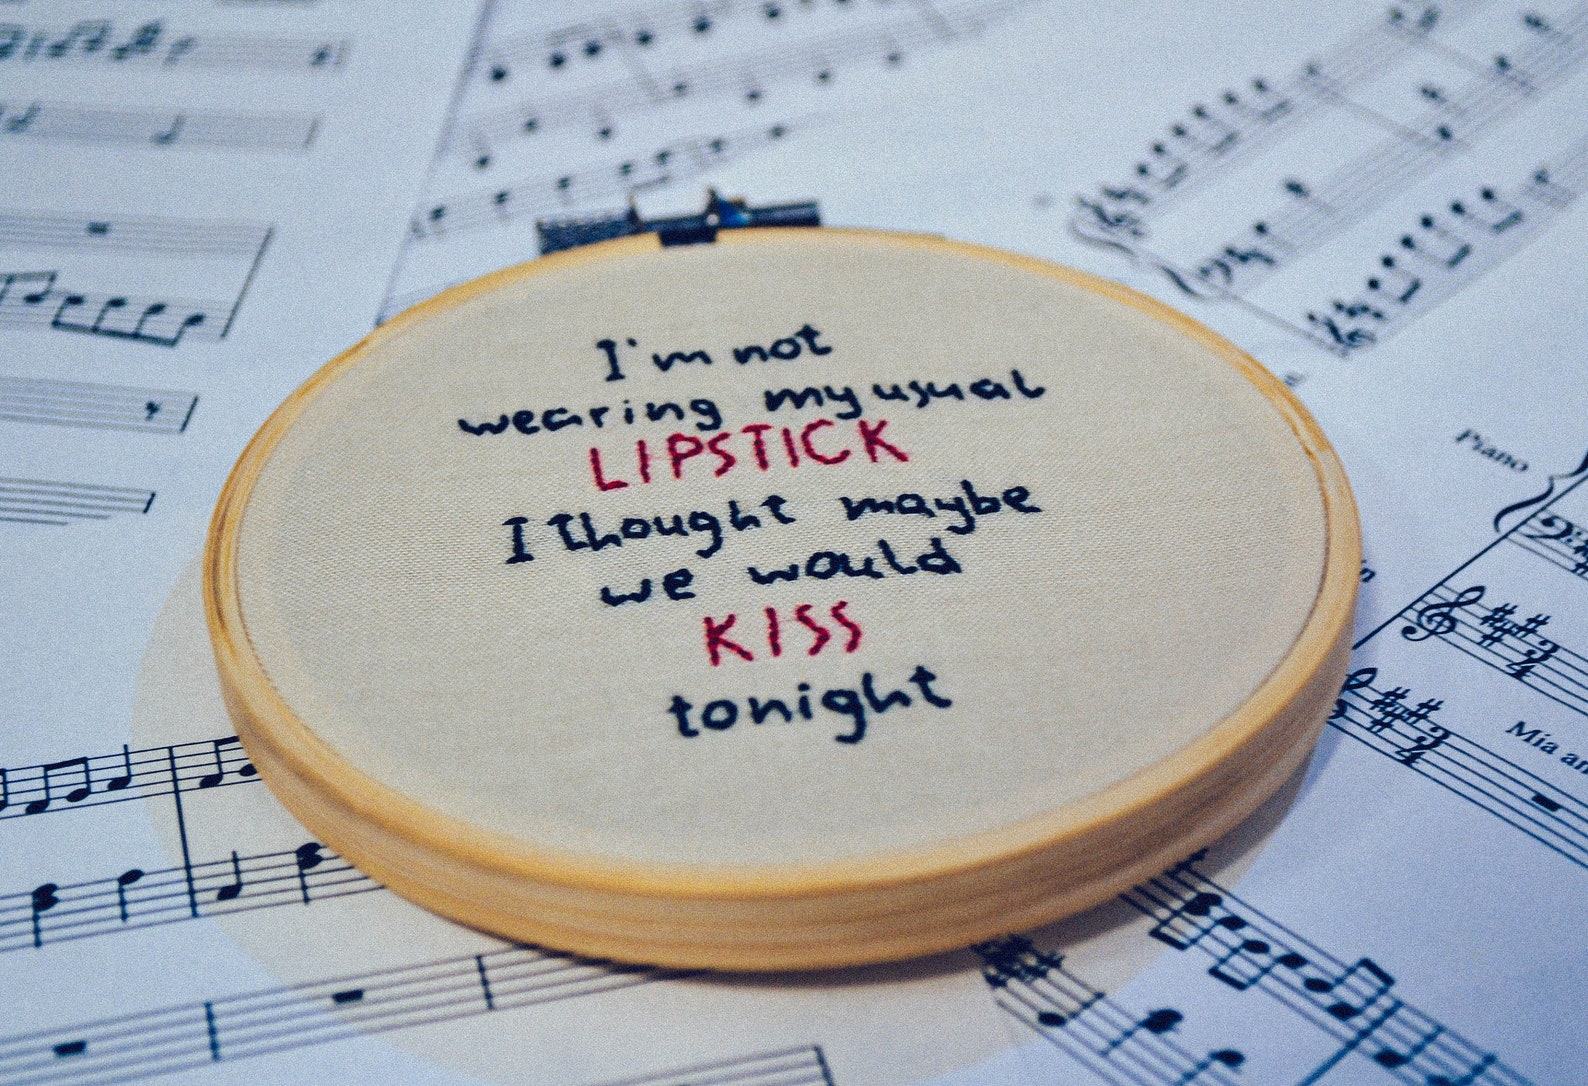 I'm not
wearing my usual
LIPSTICK
I thought maybe
we would
KISS
tonight
Piano
Mia